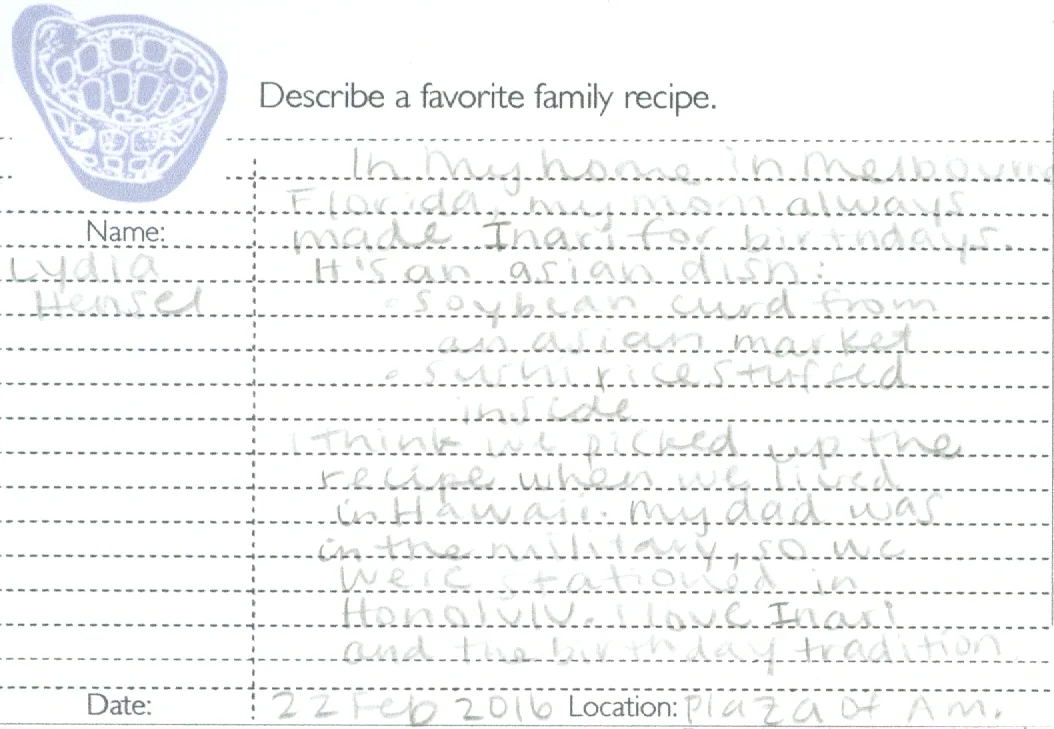 Describe a favorite family recipe.
In my home in Melbourne
Florida, my mom always
made Inari for birthdays.
It's an asian dish:
• soybean curd from
an asian market
• sushi rice stuffed
inside
I think we picked up the
recipe when we lived
in Hawaii. my dad was
in the military, so we
were stationed in
Honolulu. i love Inari
and the birthday tradition
Name:
Lydia
Hensel
Date: 22 Feb 2016 Location: Plaza of Am.